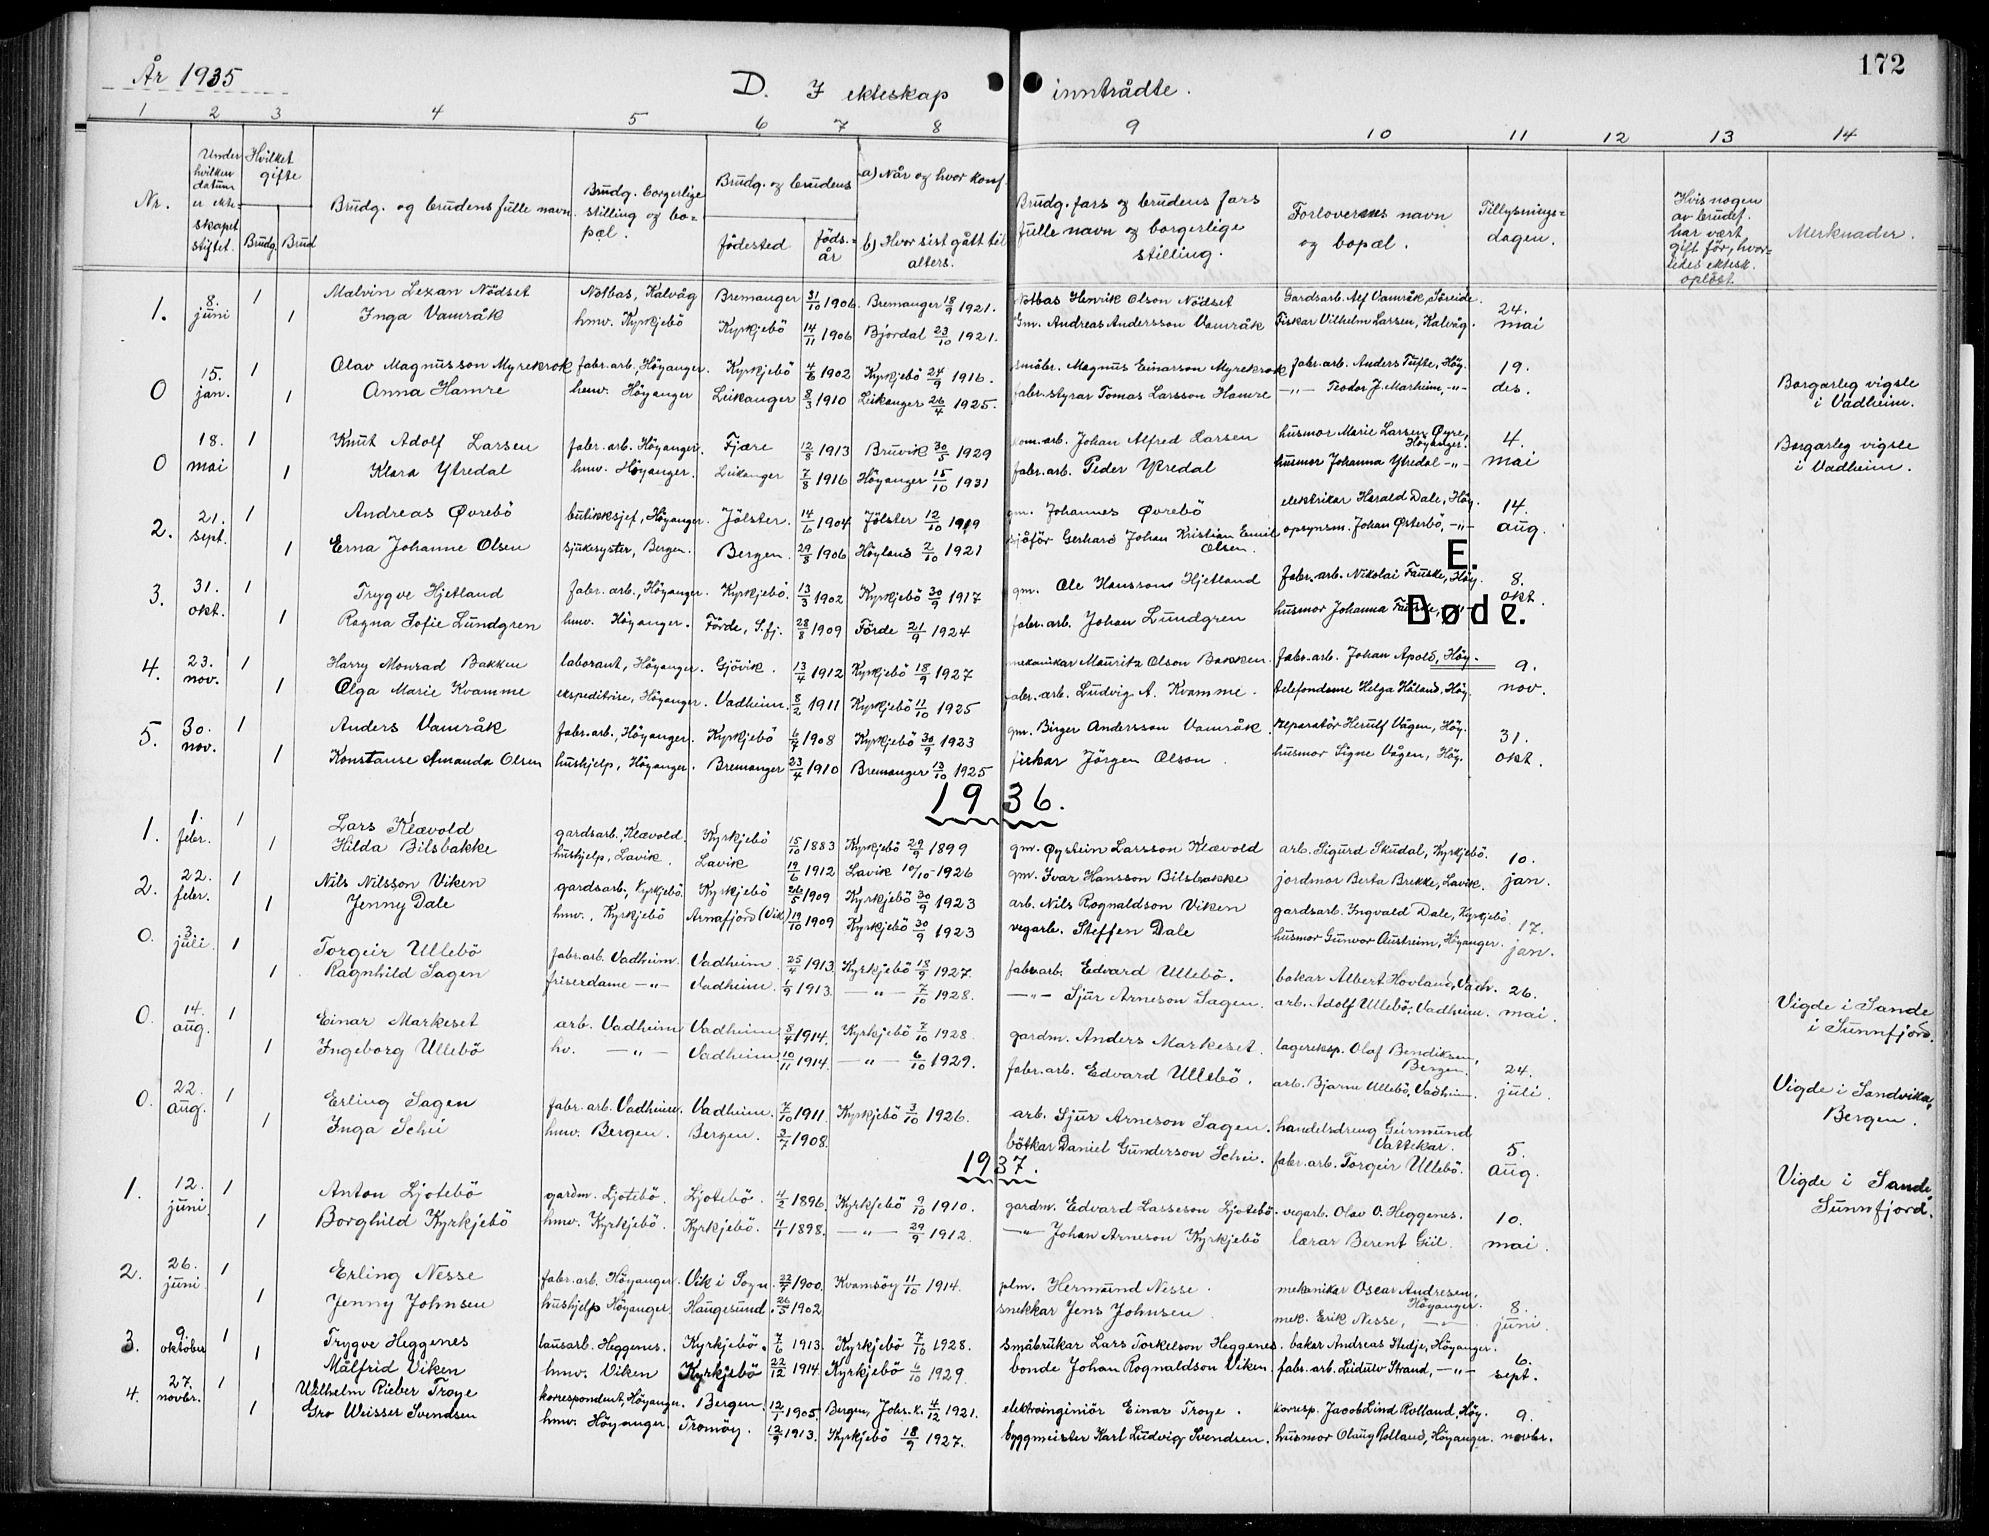 172
År 1935
D. I ekteskap inntrådte.
1 2 3 4 5 6 7 8 9 10 11 12 13 14
Nr.
Under hvilken datum er ekteskapet stiftet.
Hvilket gifte
Brudg. Brud
Brudg. og brudens fulle navn
Brudg. borgerlige stilling og bopæl.
Brudg. og brudens
fødested
føds.-år
a) Når og hvor konf.
b) Hvor sist gått til alters.
Brudg. fars og brudens fars fulle navn og borgerlige stilling.
Forlovernes navn og bopæl.
Tillysningsdagen.
Hvis nogen av brudef. har vært gift før, hvorledes ektesk. opløst.
Merknader.
1. 8. juni 1 Malvin Lexan Nödset Notbas, Kalvåg Bremanger 31/10 1906. Bremanger 18/9 1921. Notbas Henrik Olson Nödset Gardsarb. Alf Vamråk, Söreide. 24. mai
1 Inga Vamråk hmv. Kyrkjebö Kyrkjebö 14/11 1906 Bjordal 23/10 1921. Gm. Andreas Andersson Vamråk Fiskar Vilhelm Larsen, Kalvåg.
0 15. jan. 1 Olav Magnusson Myrekrok fabr. arb., Höyanger. Kyrkjebö 4/6 1902 Kyrkjebö 24/9 1916. småbr. Magnus Einarson Myrekrok fabr. arb. Anders Tufte, Höy. 19. des. Borgarleg vigsle i Vadheim.
1 Anna Hamre hmv. Höyanger Leikanger 8/3 1910 Leikanger 26/4 1925. fabr. styrar Tomas Larsson Hamre -"- Teodor J. Marheim, -"-
0 18. mai 1 Knut Adolf Larsen fabr. arb. Höyanger. Fjære 12/8 1913 Bruvik 30/5 1929 kom. arb. Johan Alfred Larsen husmor Marie Larsen Øyre, Höyanger. 4. mai Borgarleg vigsle i Vadheim.
1 Klara Ytredal hmv. Höyanger. Leikanger 7/8 1916 Höyanger 15/10 1931 fabr. arb. Peder Ytredal husmor Johanna Ytredal -"-
2. 21. sept. 1 Andreas Øvrebö butikksjef, Höyanger. Jölster. 14/6 1904 Jölster 12/10 1919 gm. Johannes Øvrebö elektrikar Harald Dale, Höy. 14. aug.
1 Erna Johanne Olsen sjukesyster, Bergen. Bergen. 29/8 1906 Höyland 2/10 1921 sjåför Gerhard Johan Kristian Emil Olsen. opsynsm. Johan Østerbö, -"-
E.
Døde.
3. 31. okt. 1 Trygve Hjetland fabr. arb., Höyanger. Kyrkjebö. 13/3 1902 Kyrkjebö 30/9 1917 gm. Ole Hanssons Hjetland fabr. arb. Nikolai Fauske, Höy. 8. okt.
1 Ragna Sofie Lundgren hmv. Höyanger. Förde, S.fj. 28/8 1909 Förde 21/9 1924 fabr. arb. Johan Lundgren husmor Johanna Fauske, -"-
4. 23. nov. 1 Harry Monrad Bakken laborant, Höyanger. Gjövik. 13/4 1912 Kyrkjebö 18/9 1927 mekanikar Mauritz Olson Bakken. fabr. arb. Johan Apold, Höy. 9. nov.
1 Olga Marie Kvamme ekspeditrise, Höyanger. Vadheim. 8/2 1911 Kyrkjebö 11/10 1925 fabr. arb. Ludvig A. Kvamme. telefondame Helga Håland, Höy.
5. 30. nov. 1 Anders Vamråk fabr. arb., Höyanger. Kyrkjebö 6/7 1908 Kyrkjebö 30/9 1923 gm. Birger Andersson Vamråk. reparatör Herulf Vågen, Höy. 31. okt.
1 Konstanse Amanda Olsen hushjelp, Höyanger. Bremanger 23/4 1910 Bremanger 13/10 1925 fiskar Jörgen Olson. husmor Signe Vågen, Höy.
1936.
1. 1. febr. 1 Lars Klævold gardsarb. Klævold. Kyrkjebö 15/10 1883 Kyrkjebö 24/9 1899 gm. Øystein Larsson Klævold arb. Sigurd Skudal, Kyrkjebö. 10. jan.
1 Hilda Bilsbakke hushjelp, Lavik. Lavik 19/6 1912 Lavik 10/10-1926 gm. Ivar Hansson Bilsbakke jordmor Berta Brekke, Lavik.
2. 22. febr. 1 Nils Nilsson Viken gardsarb. Kyrkjebö. Kyrkjebö 26/5 1909 Kyrkjebö 30/9 1923 arb. Nils Rognaldson Viken gardsarb. Ingvald Dale, Kyrkjebö 17. jan.
1 Jenny Dale hmv., Kyrkjebö Arnafjord (Vik) 19/10 1909 Kyrkjebö 30/9 1923 vegarb. Steffen Dale husmor Gunvor Austreim, Höyanger.
0. 3 juli. 1 Torgeir Ullebö fabr. arb. Vadheim. Vadheim 25/4 1913. Kyrkjebö 18/9 1927. fabr arb. Edvard Ullebö. bakar Albert Hovland, Vadh. 26. mai. Vigde i Sande i Sunnfjord.
1 Ragnhild Sagen friserdame -"- Vadheim. 1/9 1913. -"- 7/10 1928. -"- Sjur Arneson Sagen. arb. Adolf Ullebö, Vadheim.
0. 14. aug. 1 Einar Markeset arb. Vadheim Vadheim 8/4 1914. Kyrkjebö 7/10 1928. gardm. Anders Markeset. lagereksp. Olaf Bendiksen, Bergen. 24. juli. Vigde i Sandvika, Bergen.
1 Ingeborg Ullebö hv. -"- Vadheim 10/11 1914. -"- 6/10 1929. fabr. arb. Edvard Ullebö. arb. Bjarne Ullebö, Vadheim.
0. 22. aug. 1 Erling Sagen fabr. arb. Vadheim. Vadheim. 7/10 1911. Kyrkjebö 3/10 1926. arb. Sjur Arneson Sagen. handelsdreng Geirmund Vattekar. 5. aug. Vigde i Sande, Sunnfjord.
1 Inga Schei hmv. Bergen. Bergen. 3/7 1908. bötkar Daniel Gunderson Schei. fabr. arb. Torgeir Ullebö.
1937.
1. 12. juni. 1 Anton Ljotebö gardm. Ljotebö. Ljotebö. 4/2 1896. Kyrkjebö 9/10 1910. gardm. Edvard Lasseson Ljotebö. vegarb. Olav O. Heggenes. 10. mai.
1 Borghild Kyrkjebö hmv. Kyrkjebö. Kyrkjebö. 4/1 1898. -"- 29/9 1912. -"- Johan Arneson Kyrkjebö lærar Berent Gül.
2. 26. juni. 1 Erling Nesse fabr. arb. Höyanger. Vik i Sogn. 22/7 1900. Kvamsöy 11/10 1914. plm. Hermund Nesse. mekanikar Oscar Andresen, Höyanger. 8. juni.
1 Jenny Johnsen hushjelp Höyanger. Haugesund. 26/5 1902. snekkar Jens Johnsen. mek. Erik Nesse, -"-
3. 9. oktober 1 Trygve Heggenes lausarb. Heggenes. Kyrkjebö. 7/6 1913. Kyrkjebö 7/10 1928. Småbrukar Lars Torkelson Heggenes. baker Andreas Stedje, Höyanger. 6. sept.
1 Målfrid Viken hmv. Viken Kyrkjebö 22/12 1914. Kyrkjebö 6/10 1929. bonde Johan Rognaldson Viken. fabr. arb. Leidulv Strand, -"-
4. 27. novbr. 1 Wilhelm Rieber Troye korrespondent, Höyanger. Bergen. 12/1 1905. Bergen, Johs. k. 4/12 1921. elektroingeniör Einar Troye. korresp. Jacob Lind Rolland, Höy. 9. novbr.
1 Gro Weisser Svendsen hmv. Höyanger. Tromöy. 12/9 1913. Kyrkjebö 18/9 1927. byggmeister Karl Ludvig Svendsen. husmor Olaug Rolland, Höyanger.